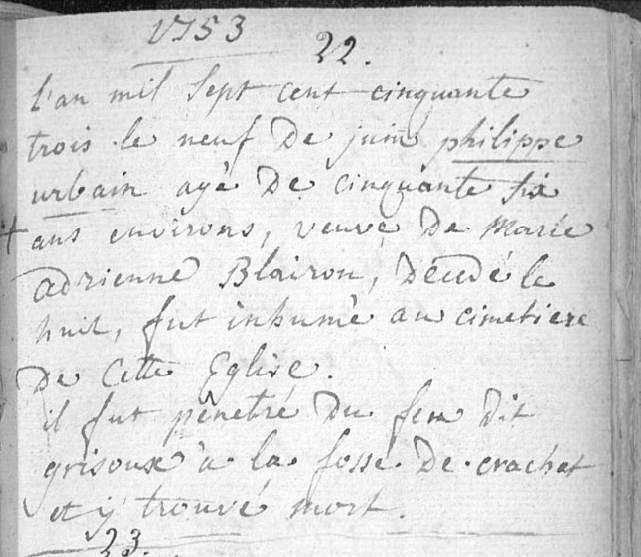 1753
22.
L'an mil Sept cent cinquante
trois le neuf De juin philippe
urbain agé De cinquante six
+ ans environs, veuve De Marie
adrienne Blairon, Décedé le
huit, fut inhumé au cimetiere
De Cette Eglise.
il fut pénetré Du feu Dit
grisoux a la fosse De crachet
et y trouvé mort.
23.